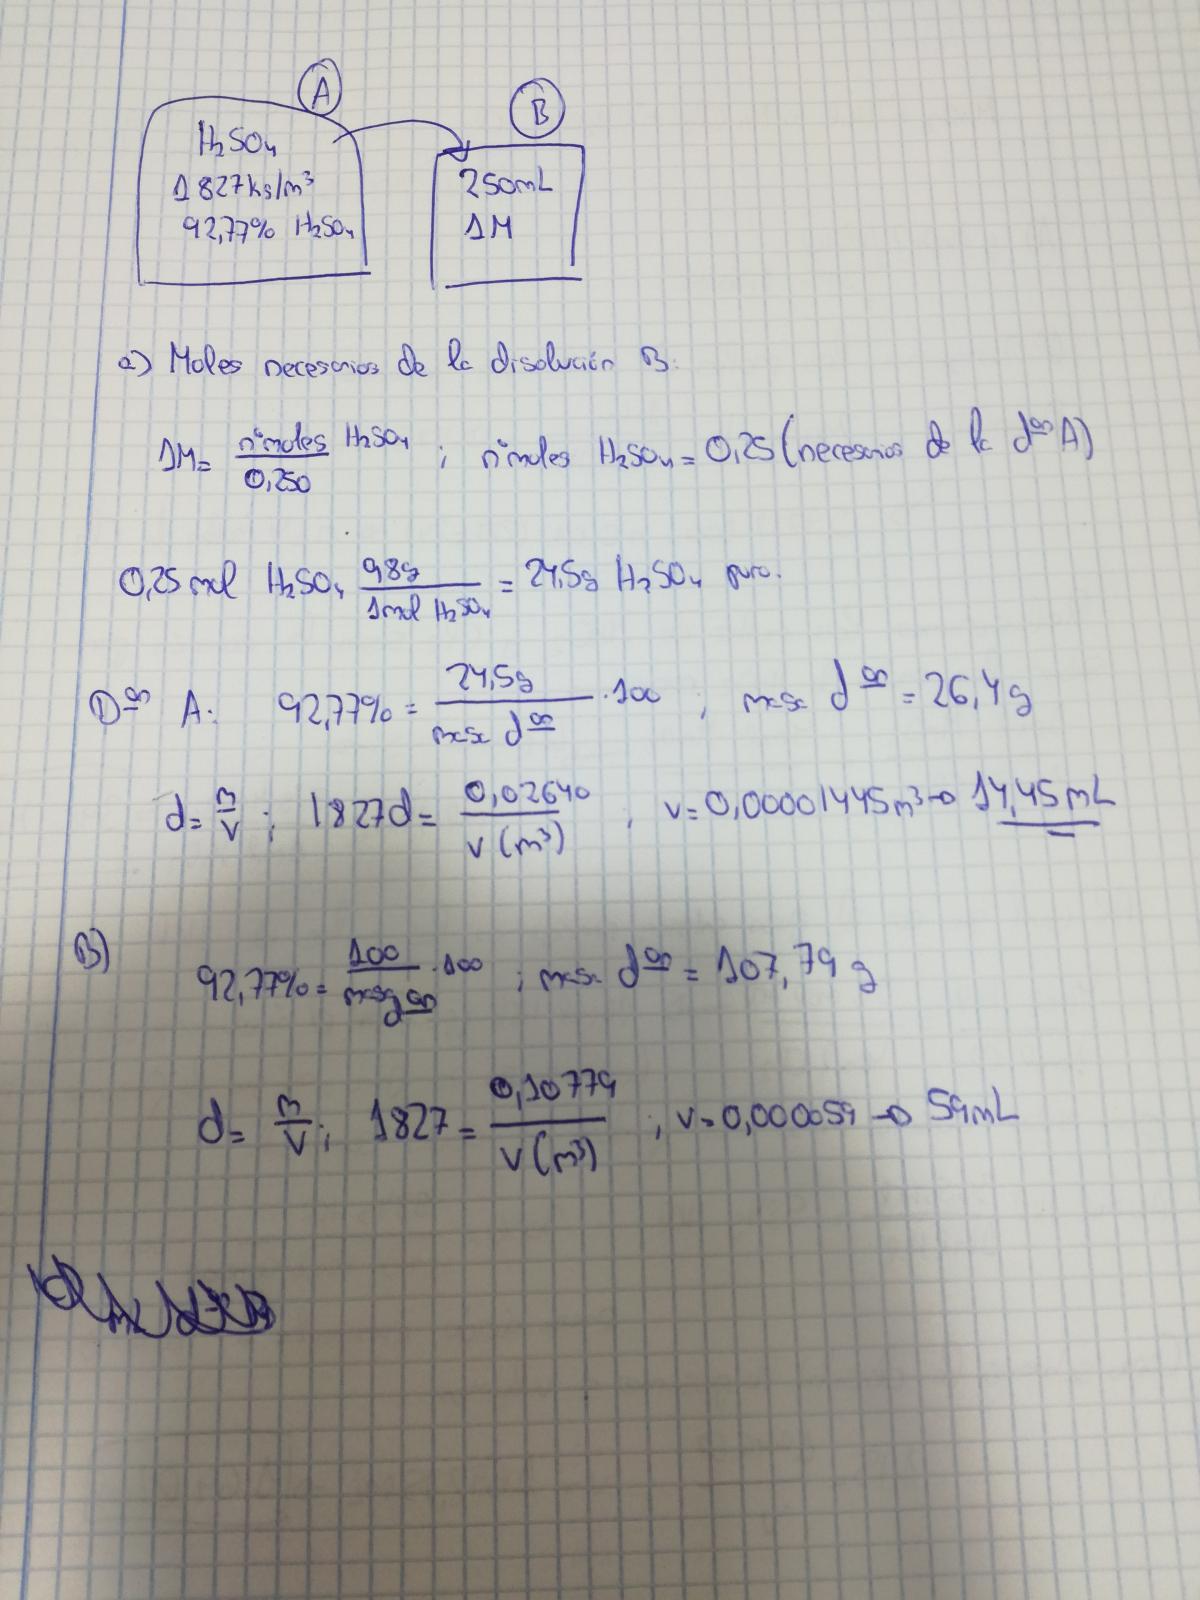 A
B
H₂SO₄
1827kg/m³
92,77% H₂SO₄
250mL
1M
a) Moles necesarios de la disolución B.
1M = nºmoles H₂SO₄ / 0,250 ; nºmoles H₂SO₄ = 0,25 (necesarios de la dºⁿ A)
0,25 mol H₂SO₄ 98g / 1mol H₂SO₄ = 24,5g H₂SO₄ puro.
Dºⁿ A: 92,77% = 24,5g / masa dºⁿ · 100 ; masa dºⁿ = 26,4g
d = m/v ; 1827d = 0,02640 / v (m³) ; v = 0,00001445m³ → 14,45mL
B)
92,77% = 100 / · 100 ; masa dºⁿ = 107,79 g
d = m/v ; 1827 = 0,10779 / v (m³) ; v = 0,000059 → 59mL